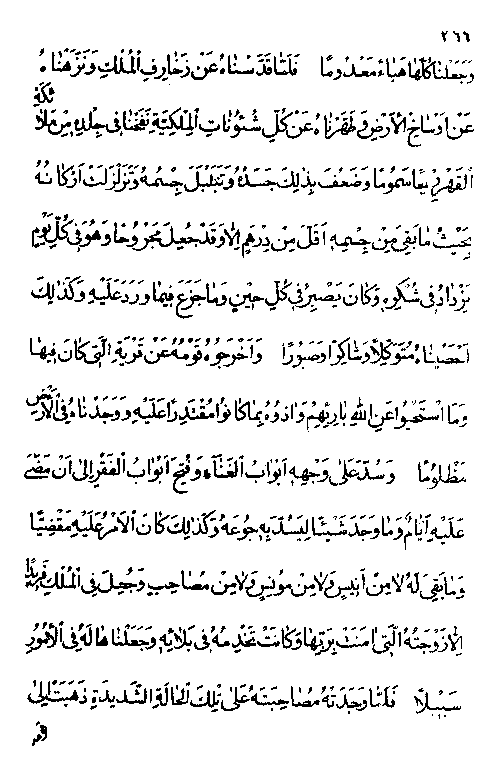 ٢٦٦
وَجَعَلْنَا كُلَّهَا هَبَاءً مَعْدُومًا فَلَمَّا قَدَّسْنَاهُ عَنْ زَخَارِفِ الْمُلْكِ وَنَزَّهْنَاهُ
عَنْ اَوْسَاخِ الْاَرْضِ وَطَهَّرْنَاهُ عَنْ كُلِّ شَئُونَاتِ الْمِلْكِيَّةِ نَفَخْنَا فِي جِلْدِهِ مِنْ مَلَائِكَةِ
الْقَهْرِ رِيحًا سَمُومًا وَضَعُفَ بِذَلِكَ جَسَدُهُ وَتَبَلْبَلَ جِسْمُهُ وَتَزَلْزَلَتْ اَرْكَانُهُ
بِحَيْثُ مَا بَقِيَ مِنْ جِسْمِهِ اَقَلَّ مِنْ دِرْهَمٍ اِلَّا وَقَدْ جُعِلَ مَجْرُوحًا وَهُوَ فِي كُلِّ يَوْمٍ
يَزْدَادُ فِي شُكْرِهِ وَكَانَ يَصْبِرُ فِي كُلِّ حِينٍ وَمَا جَزِعَ فِيمَا وَرَدَ عَلَيْهِ وَكَذَلِكَ
اَحْصَيْنَاهُ مُتَوَكِّلًا وَشَاكِرًا وَصَبُورًا وَاَخْرَجُوهُ قَوْمُهُ عَنْ قَرْيَةِ الَّتِي كَانَ فِيهَا
وَمَا اسْتَحْيُوا عَنِ اللهِ بَارِئِهِمْ وَاٰذُوهُ بِمَا كَانُوا مُقْتَدِرًا عَلَيْهِ وَوَجَدْنَاهُ فِي الْاَرْضِ
مَظْلُومًا وَسُدَّ عَلَى وَجْهِهِ اَبْوَابُ الْغَنَاءِ وَفُتِحَ اَبْوَابُ الْفَقْرِ اِلَى اَنْ مَضَى
عَلَيْهِ اَيَّامٌ وَمَا وَجَدَ شَيْئًا لِيَسُدَّ بِهِ جُوعَهُ وَكَذَلِكَ كَانَ الْاَمْرُ عَلَيْهِ مَقْضِيًّا
وَمَا بَقِيَ لَهُ لَا مِنْ اَنِيسٍ وَلَا مِنْ مُونِسٍ وَلَا مِنْ مُصَاحِبٍ وَجُعِلَ فِي الْمُلْكِ فَرِيدًا
اِلَّا زَوْجَتُهُ الَّتِي اٰمَنَتْ بِرَبِّهَا وَكَانَتْ تَخْدِمُهُ فِي بَلَائِهِ وَجَعَلْنَا هَا لَهُ فِي الْاُمُورِ
سَبِيلًا فَلَمَّا وَجَدَتْهُ مُصَاحِبَتُهُ عَلَى تِلْكَ الْحَالَةِ الشَّدِيدَةِ ذَهَبَتْ اِلَى